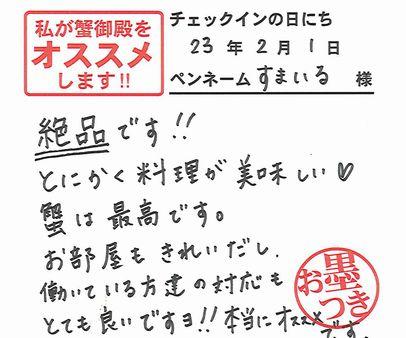 私が蟹御殿を
オススメ
します!!
チェックインの日にち
23年2月1日
ペンネーム すまいる 様
絶品です!!
とにかく料理が美味しい♡
蟹は最高です。
お部屋もきれいだし、
働いている方達の対応も
とても良いですヨ!! 本当にオススメです。
お墨つき